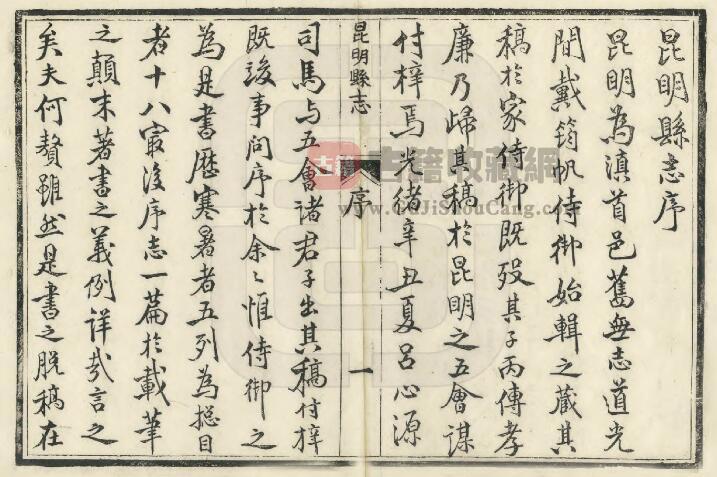 昆明縣志序
昆明為滇首邑舊無志道光
間戴筠帆侍御始輯之蔵其
稿於家侍御既歿其子丙傳孝
廉乃歸其稿於昆明之五會謀
付梓焉光緒辛丑夏呂心源
昆明縣志
序
一
司馬与五會諸君子出其稿付梓
既竣事問序於余〻惟侍御之
為是書歷寒暑者五列為總目
者十八㝡後序志一篇於載筆
之顛末著書之義例詳哉言之
矣夫何贅雖然是書之脫稿在
古籍
古籍收藏網
www.GuJiShouCang.com